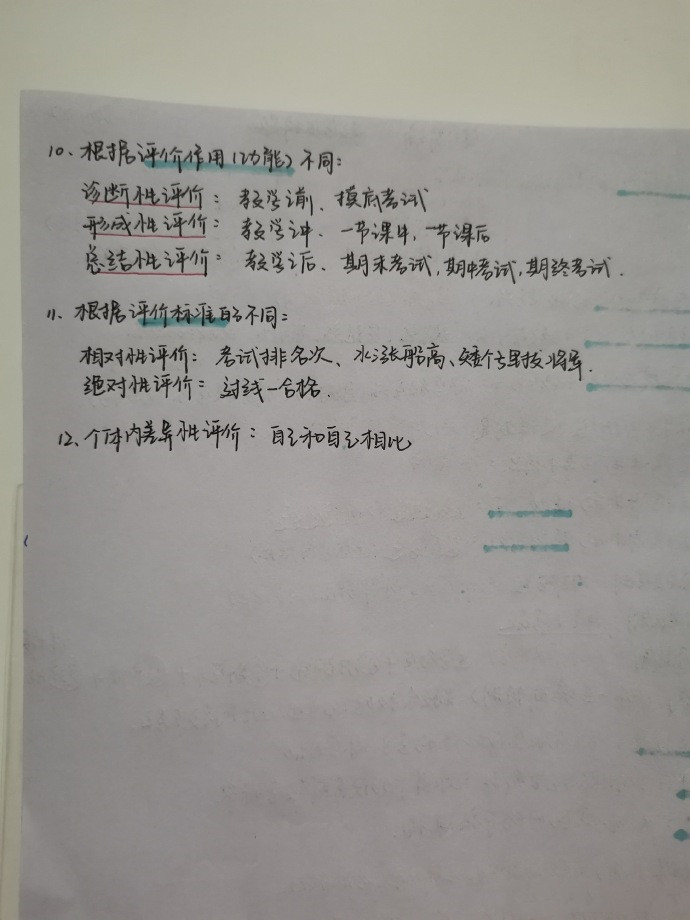 10、根据评价作用(功能)不同:
诊断性评价: 教学前、摸底考试
形成性评价: 教学中、一节课中,一节课后
总结性评价: 教学后、期末考试,期中考试,期终考试.
11、根据评价标准的不同:
相对性评价: 考试排名次、水涨船高、矮个里拔将军.
绝对性评价: 划线一合格.
12、个体内差异性评价: 自己和自己相比